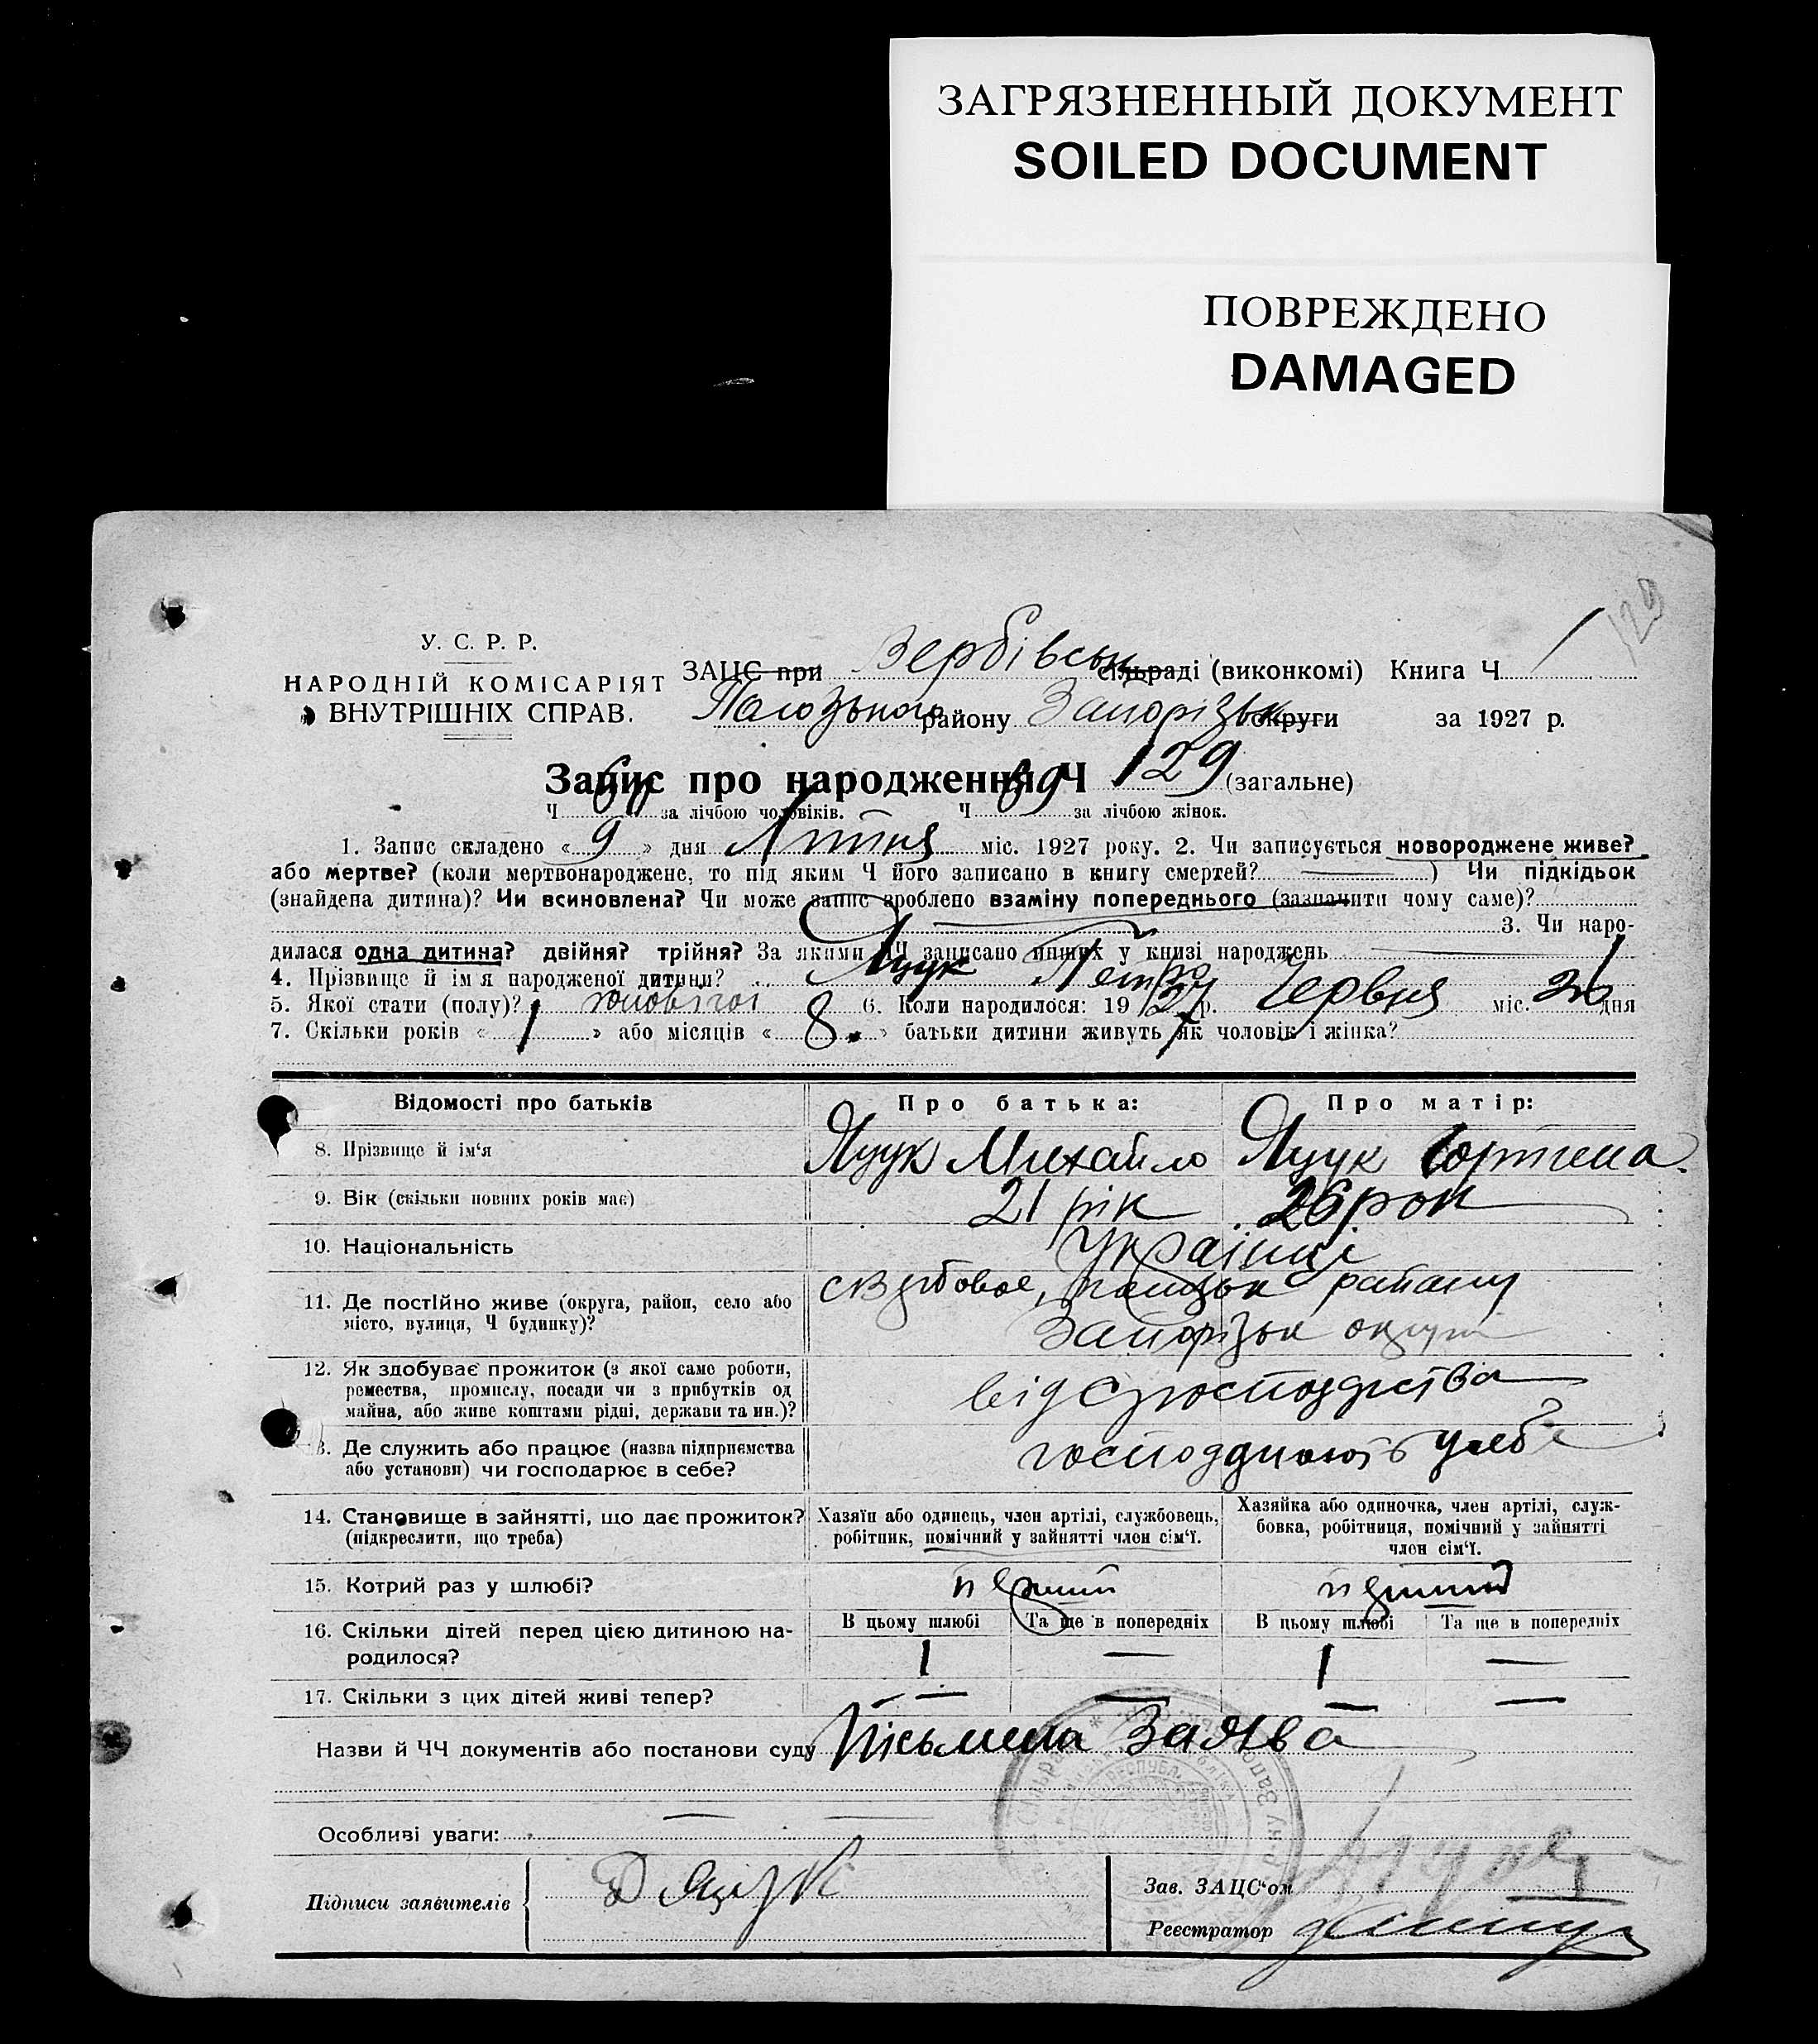 ЗАГРЯЗНЕННЫЙ ДОКУМЕНТ
SOILED DOCUMENT
ПОВРЕЖДЕНО
DAMAGED
129
У. С. Р. Р.
НАРОДНІЙ КОМІСАРІЯТ
ВНУТРІШНІХ СПРАВ.
ЗАЦС при Вербівськ сільраді (виконкомі) Книга Ч 1
району Запорізьк округи за 1927 р.
Запис про народження Ч 129 (загальне)
Ч 60 за лічбою чоловіків. Ч 69 за лічбою жінок.
1. Запис складено « 9 » дня Липня міс. 1927 року. 2. Чи записується новороджене живе?
або мертве? (коли мертвонароджене, то під яким Ч його записано в книгу смертей? — ) Чи підкідьок
(знайдена дитина)? Чи всиновлена? Чи може запис зроблено взаміну попереднього (зазначити чому саме)?
3. Чи наро-
дилася одна дитина? двійня? трійня? За якими ЧЧ записано инших у книзі народжень —
4. Прізвище й ім'я народженої дитини? Яцук Петро
5. Якої стати (полу)? 6. Коли народилося: 1927 р. Червня міс. дня
7. Скільки років « 1 » або місяців « 8 » батьки дитини живуть як чоловік і жінка?
Відомості про батьків Про батька: Про матір:
8. Прізвище й ім'я Яцук Михайло Яцук
9. Вік (скільки повних років має) 21 рік 26 рок
10. Національність Українці
11. Де постійно живе (округа, район, село або
місто, вулиця, Ч будинку)?
району
Запорізьк округи
12. Як здобуває прожиток (з якої саме роботи,
ремества, промислу, посади чи з прибутків од
майна, або живе коштами рідні, держави та ин.)?
від
13. Де служить або працює (назва підприємства
або установи) чи господарює в себе?
14. Становище в зайнятті, що дає прожиток?
(підкреслити, що треба)
Хазяїн або одинець, член артілі, службовець,
робітник, помічний у зайнятті член сім'ї.
Хазяйка або одиночка, член артілі, служ-
бовка, робітниця, помічний у зайнятті
член сім'ї.
15. Котрий раз у шлюбі? перший перший
16. Скільки дітей перед цією дитиною на-
родилося?
В цьому шлюбі Та ще в попередніх В цьому шлюбі Та ще в попередніх
1 — 1 —
17. Скільки з цих дітей живі тепер? — — — —
Назви й ЧЧ документів або постанови суду Письмена Заява
Особливі уваги:
Підписи заявителів Яцук
Зав. ЗАЦС'ом
Реєстратор